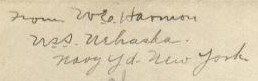 From W. E. Harmon
U.S.S. Nebraska.
Navy Yd. New York